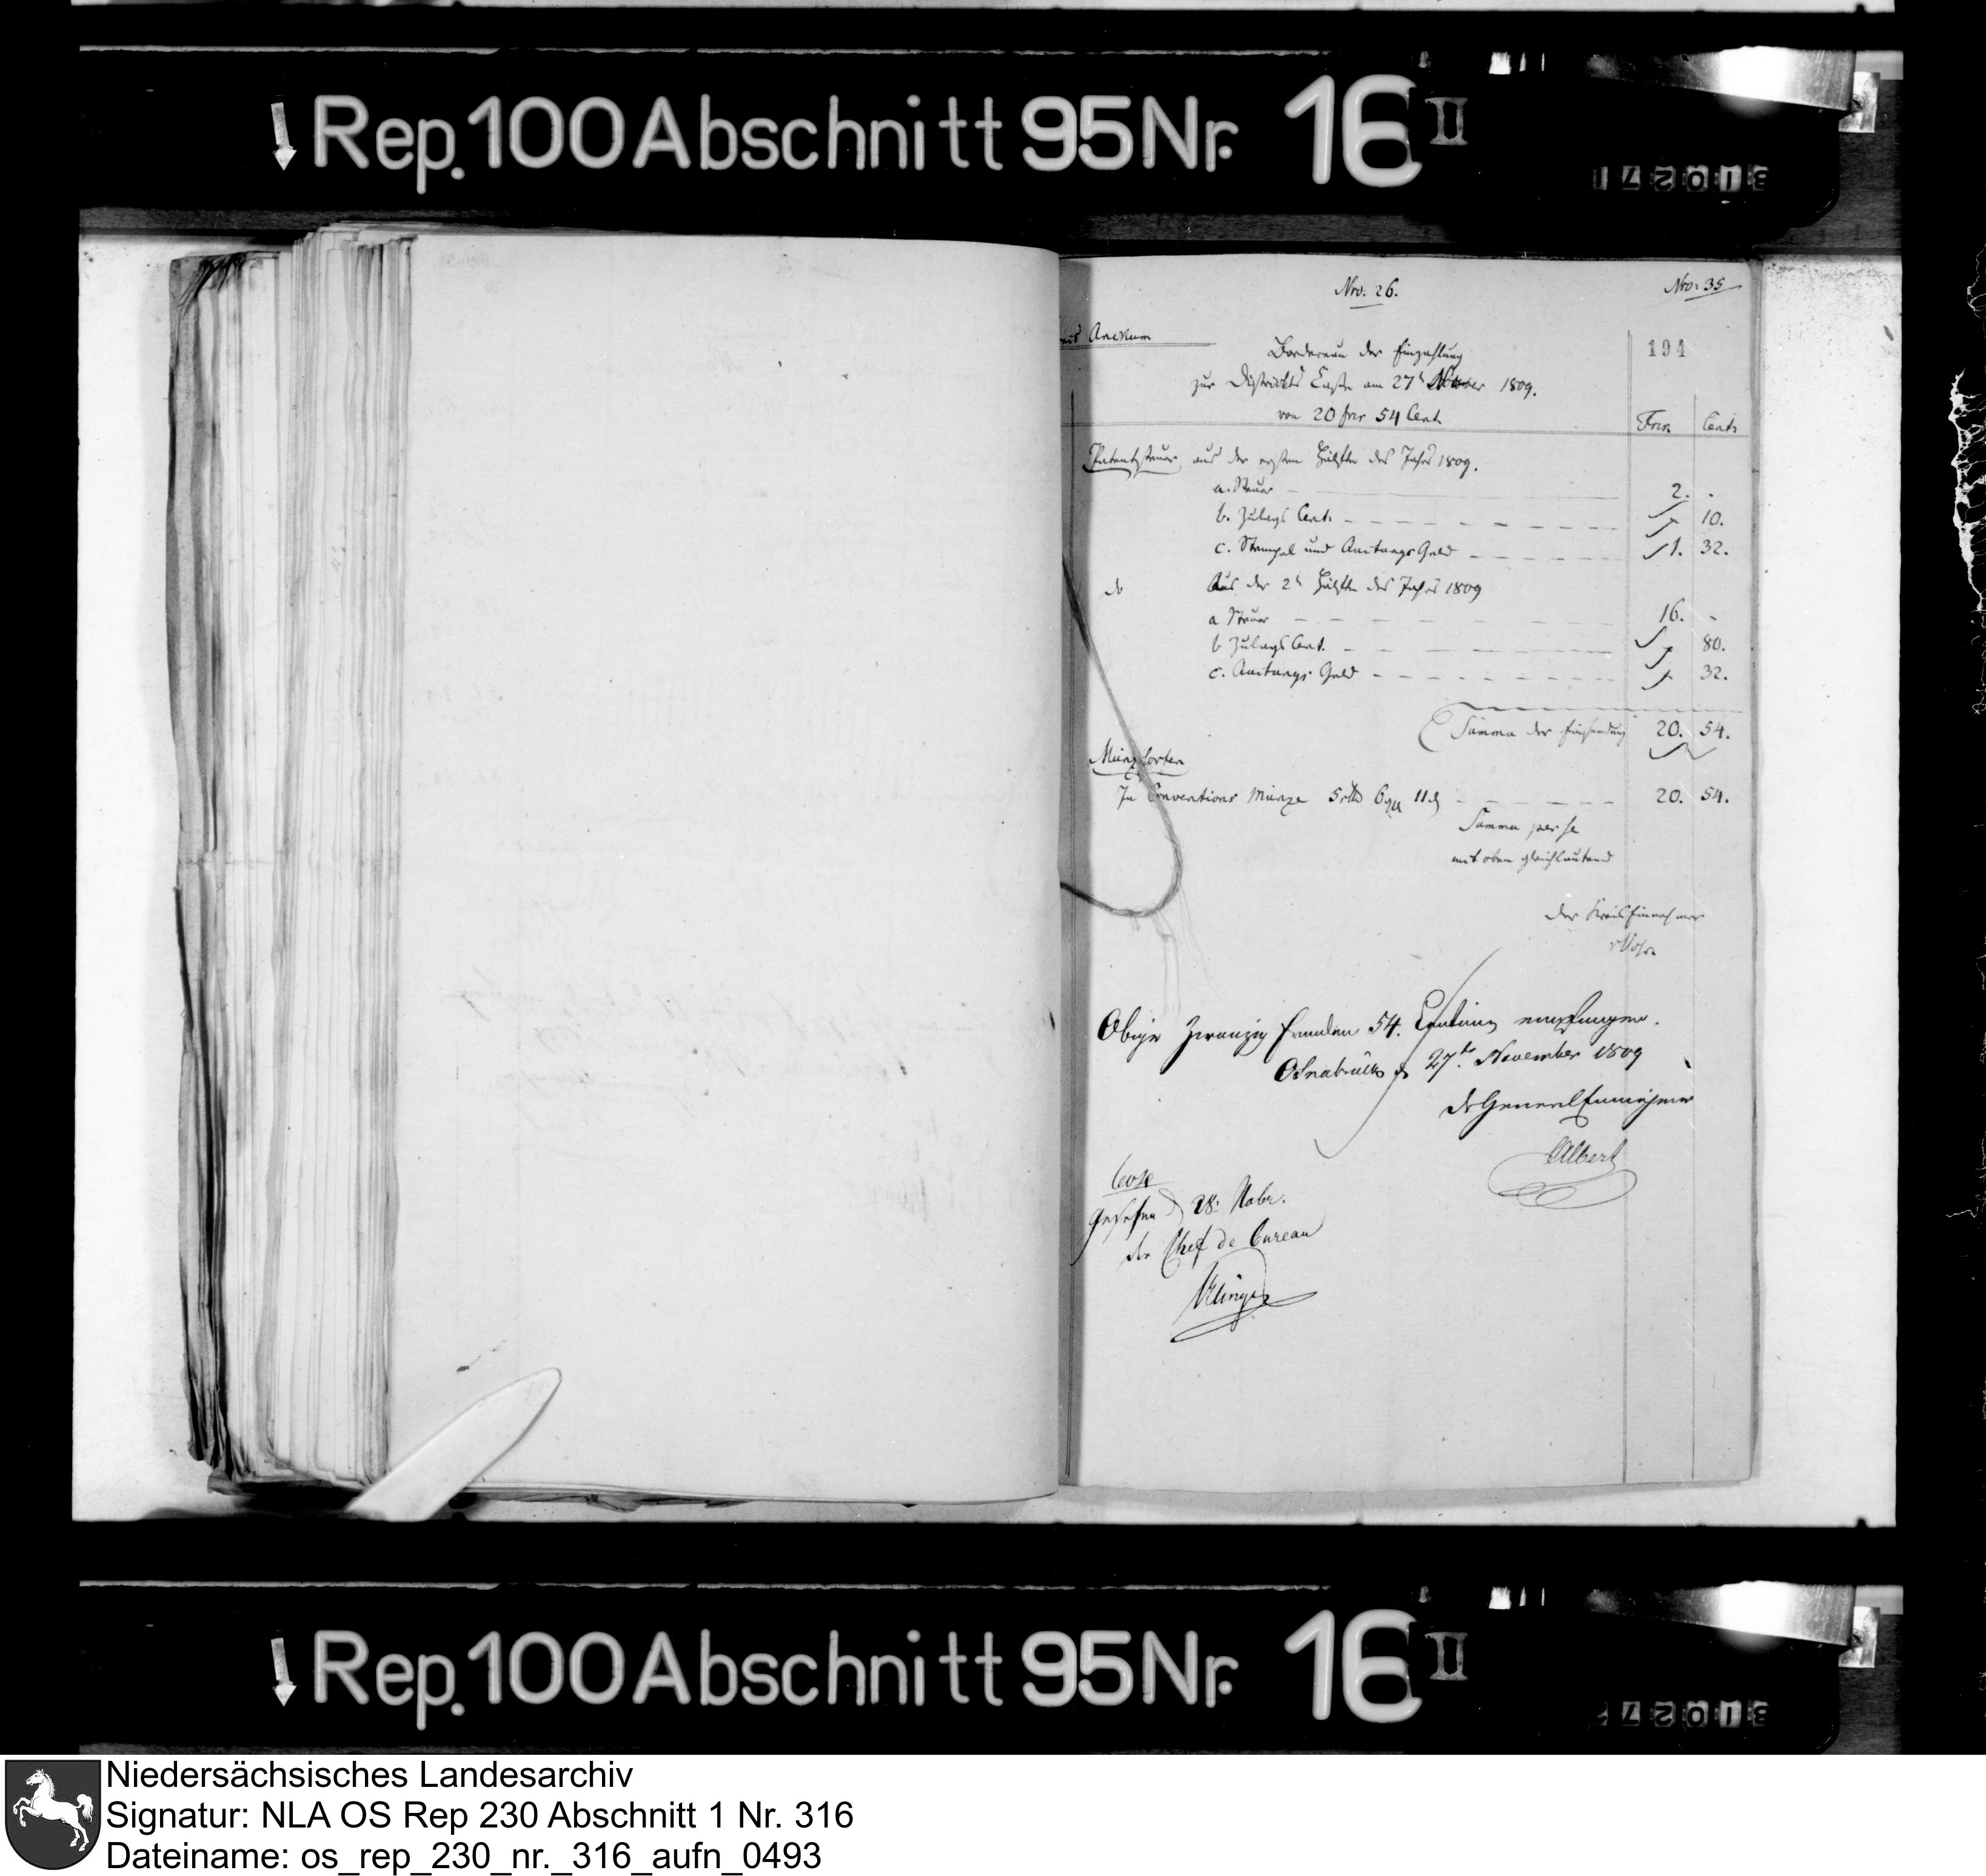 Rep. 100 Abschnitt 95 Nr. 16 II
310271
Nro: 26.
Nro: 35
Kreis Anckum
194
Bordereau der Einzahlung
zur Districkts Casse am 27t November 1809.
von 20 frcs 54 Cent.
Frcs
Cent:
Patentsteuer aus der ersten Hälfte des Jahrs 1809.
a. Steuer 2. -
b. Zulags Cent. - 10.
c. Stempel und Quitungs Geld 1. 32.
do Aus der 2t Hälfte des Jahrs 1809
a Steuer 16. -
b Zulags Cent. - 80.
c. Quitungs Geld - 32.
Summa der Einsendung 20. 54.
Münzsorten
In Conventions Münze 5 rthl 6 ggr 11 d 20. 54.
Summa per se
mit oben gleichlautend
Der Kreis Einnehmer
Obige Zwanzig Franken 54. Centimes empfangen.
Osnabrück d 27t. November 1809
Der General Einnehmer
Albert
Gesehen d 28: Nobr.
der Chef de Bureau
Rep. 100 Abschnitt 95 Nr. 16 II
Niedersächsisches Landesarchiv
Signatur: NLA OS Rep 230 Abschnitt 1 Nr. 316
Dateiname: os_rep_230_nr._316_aufn_0493